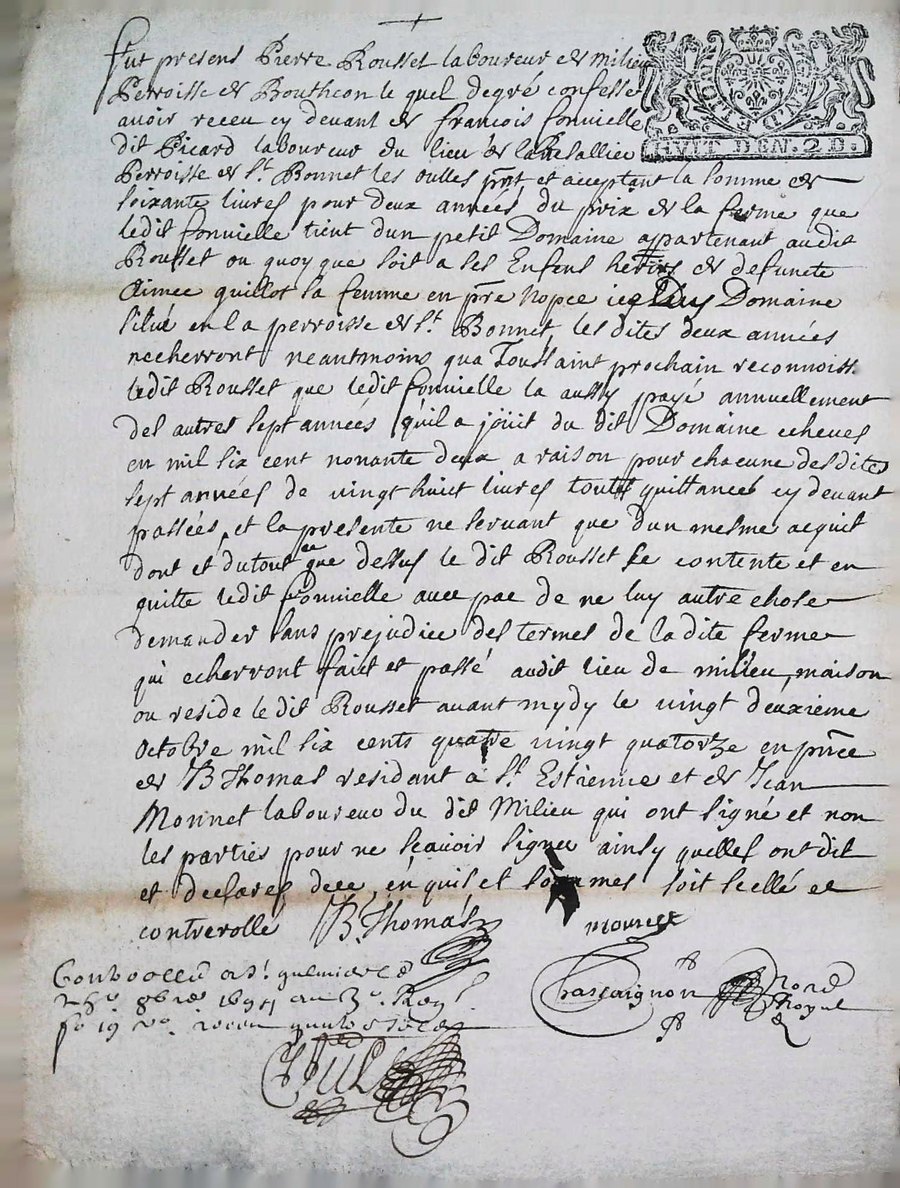 Fut present Pierre Rousset laboureur de milieu
Perroisse de Bouthcon le quel degré confesse
avoir receu cy devant de francois fonvielle
dit Picard laboureur du lieu de
GENERALITE
HVIT DEN. 2 D.
Perroisse de St. Bonnet les oulles pnt et acceptant la somme de
soixante livres pour deux années du prix de la ferme que
ledit fonvielle tient dun petit Domaine appartenant audit
Rousset ou quoy que soit a ses Enfens heritiers de defuncte
Aimee quillot sa femme en pre nopce Domaine
situé en la perroisse de St. Bonnet, les dites deux années
necherront neantmoins qua Toussaint prochain reconnoiss.
ledit Rousset que ledit fonvielle la aussy payé annuellement
des autres sept années quil a jouit du dit Domaine echeues
en mil six cent nonante deux a raison pour chacune desdites
sept années de vingt huict livres toutes quittances cy devant
passées, et la presente ne servant que dun mesme acquit
dont et dutout que dessus le dit Rousset se contente et en
quitte ledit fonvielle avec pac de ne luy autre chose
demander sans prejudice des termes de la dite ferme
qui echerront faict et passé audit lieu de milieu, maison
ou reside le dit Rousset avant mydy le vingt deuxieme
octobre mil six cents quatre vingt quatorze en pnce
de B Thomas residant à St. Estienne et de Jean
Monnet laboureur du dit Milieu qui ont signé et non
les parties pour ne scavoir signer ainsy quelles ont dit
et declarés dece enquis et sommes soit scellé et
controrollé B. Thomas
monnet
Chassaignon nore
Royal